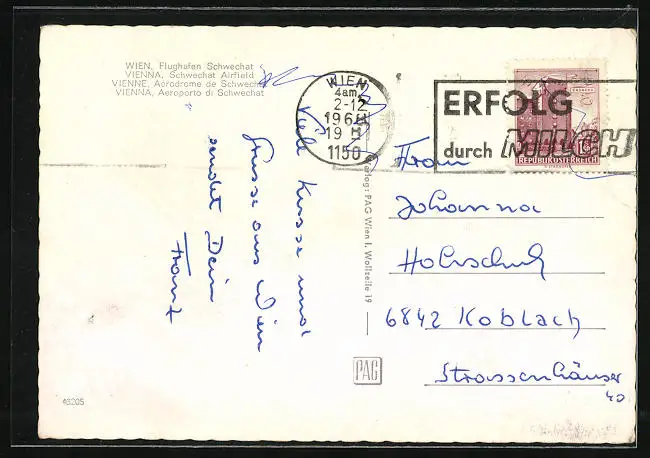 WIEN, Flughafen Schwechat
VIENNA, Schwechat Airfield
VIENNE, Aérodrome de Schwechat
VIENNA, Aeroporto di Schwechat
WIEN
4am.
2-12
1150
ERFOLG
durch MILCH
REPUBLIK ÖSTERREICH
Viele Küsse und
Grüsse aus Wien
sendet Dein
Franz
Verlag: PAG Wien I, Wollzeile 19
Frau
Johanna
6842 Koblach
Strassenhäuser
40
PAG
46205